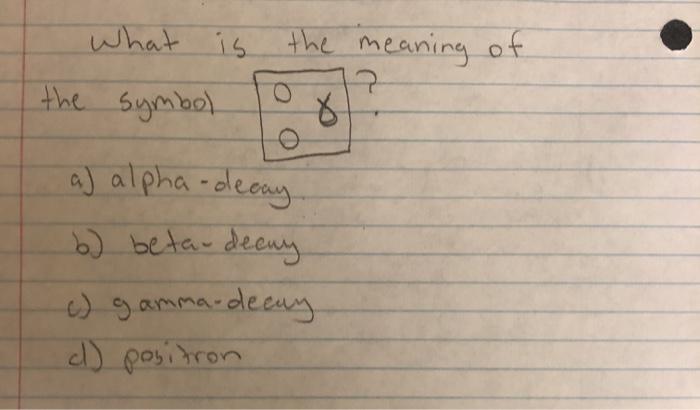 What is the meaning of
the symbol 0 0 γ ?
a) alpha-decay
b) beta-decay
c) gamma-decay
d) positron